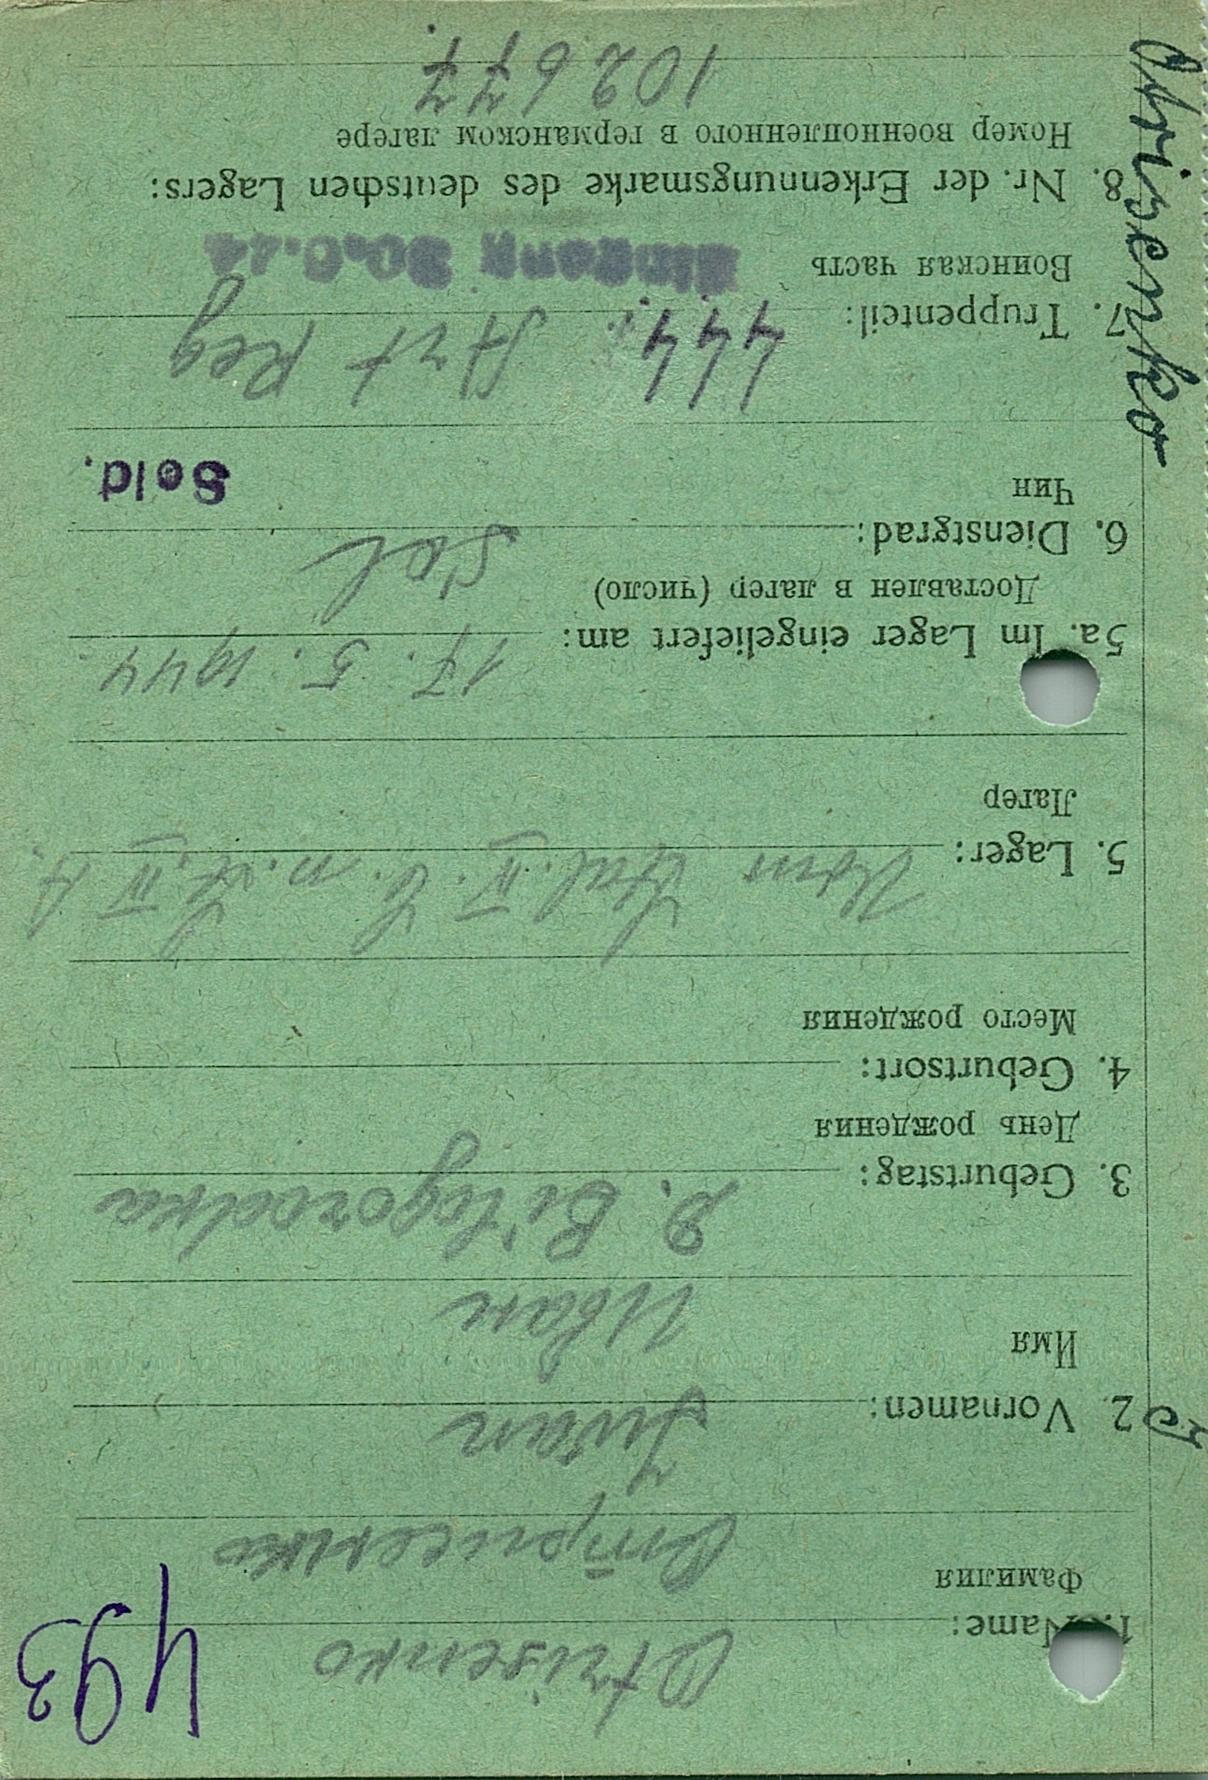 493
1. Name: Otrisenko
Фамилия Отрисенко
2. Vornamen: Iwan
Имя Иван
3. Geburtstag: D. Bilogorodka
День рождения
4. Geburtsort:
Место рождения
5. Lager: Vom Stal. IV. n. IV A.
Лагер
5a. Im Lager eingeliefert am: 17. 5. 1944
Доставлен в лагер (число)
6. Dienstgrad: Sol
Чин Sold.
7. Truppenteil: 444. Art Reg
Воинская часть
8. Nr. der Erkennungsmarke des deutschen Lagers:
Номер военнопленного в германском лагере
102677.
Otrisenko